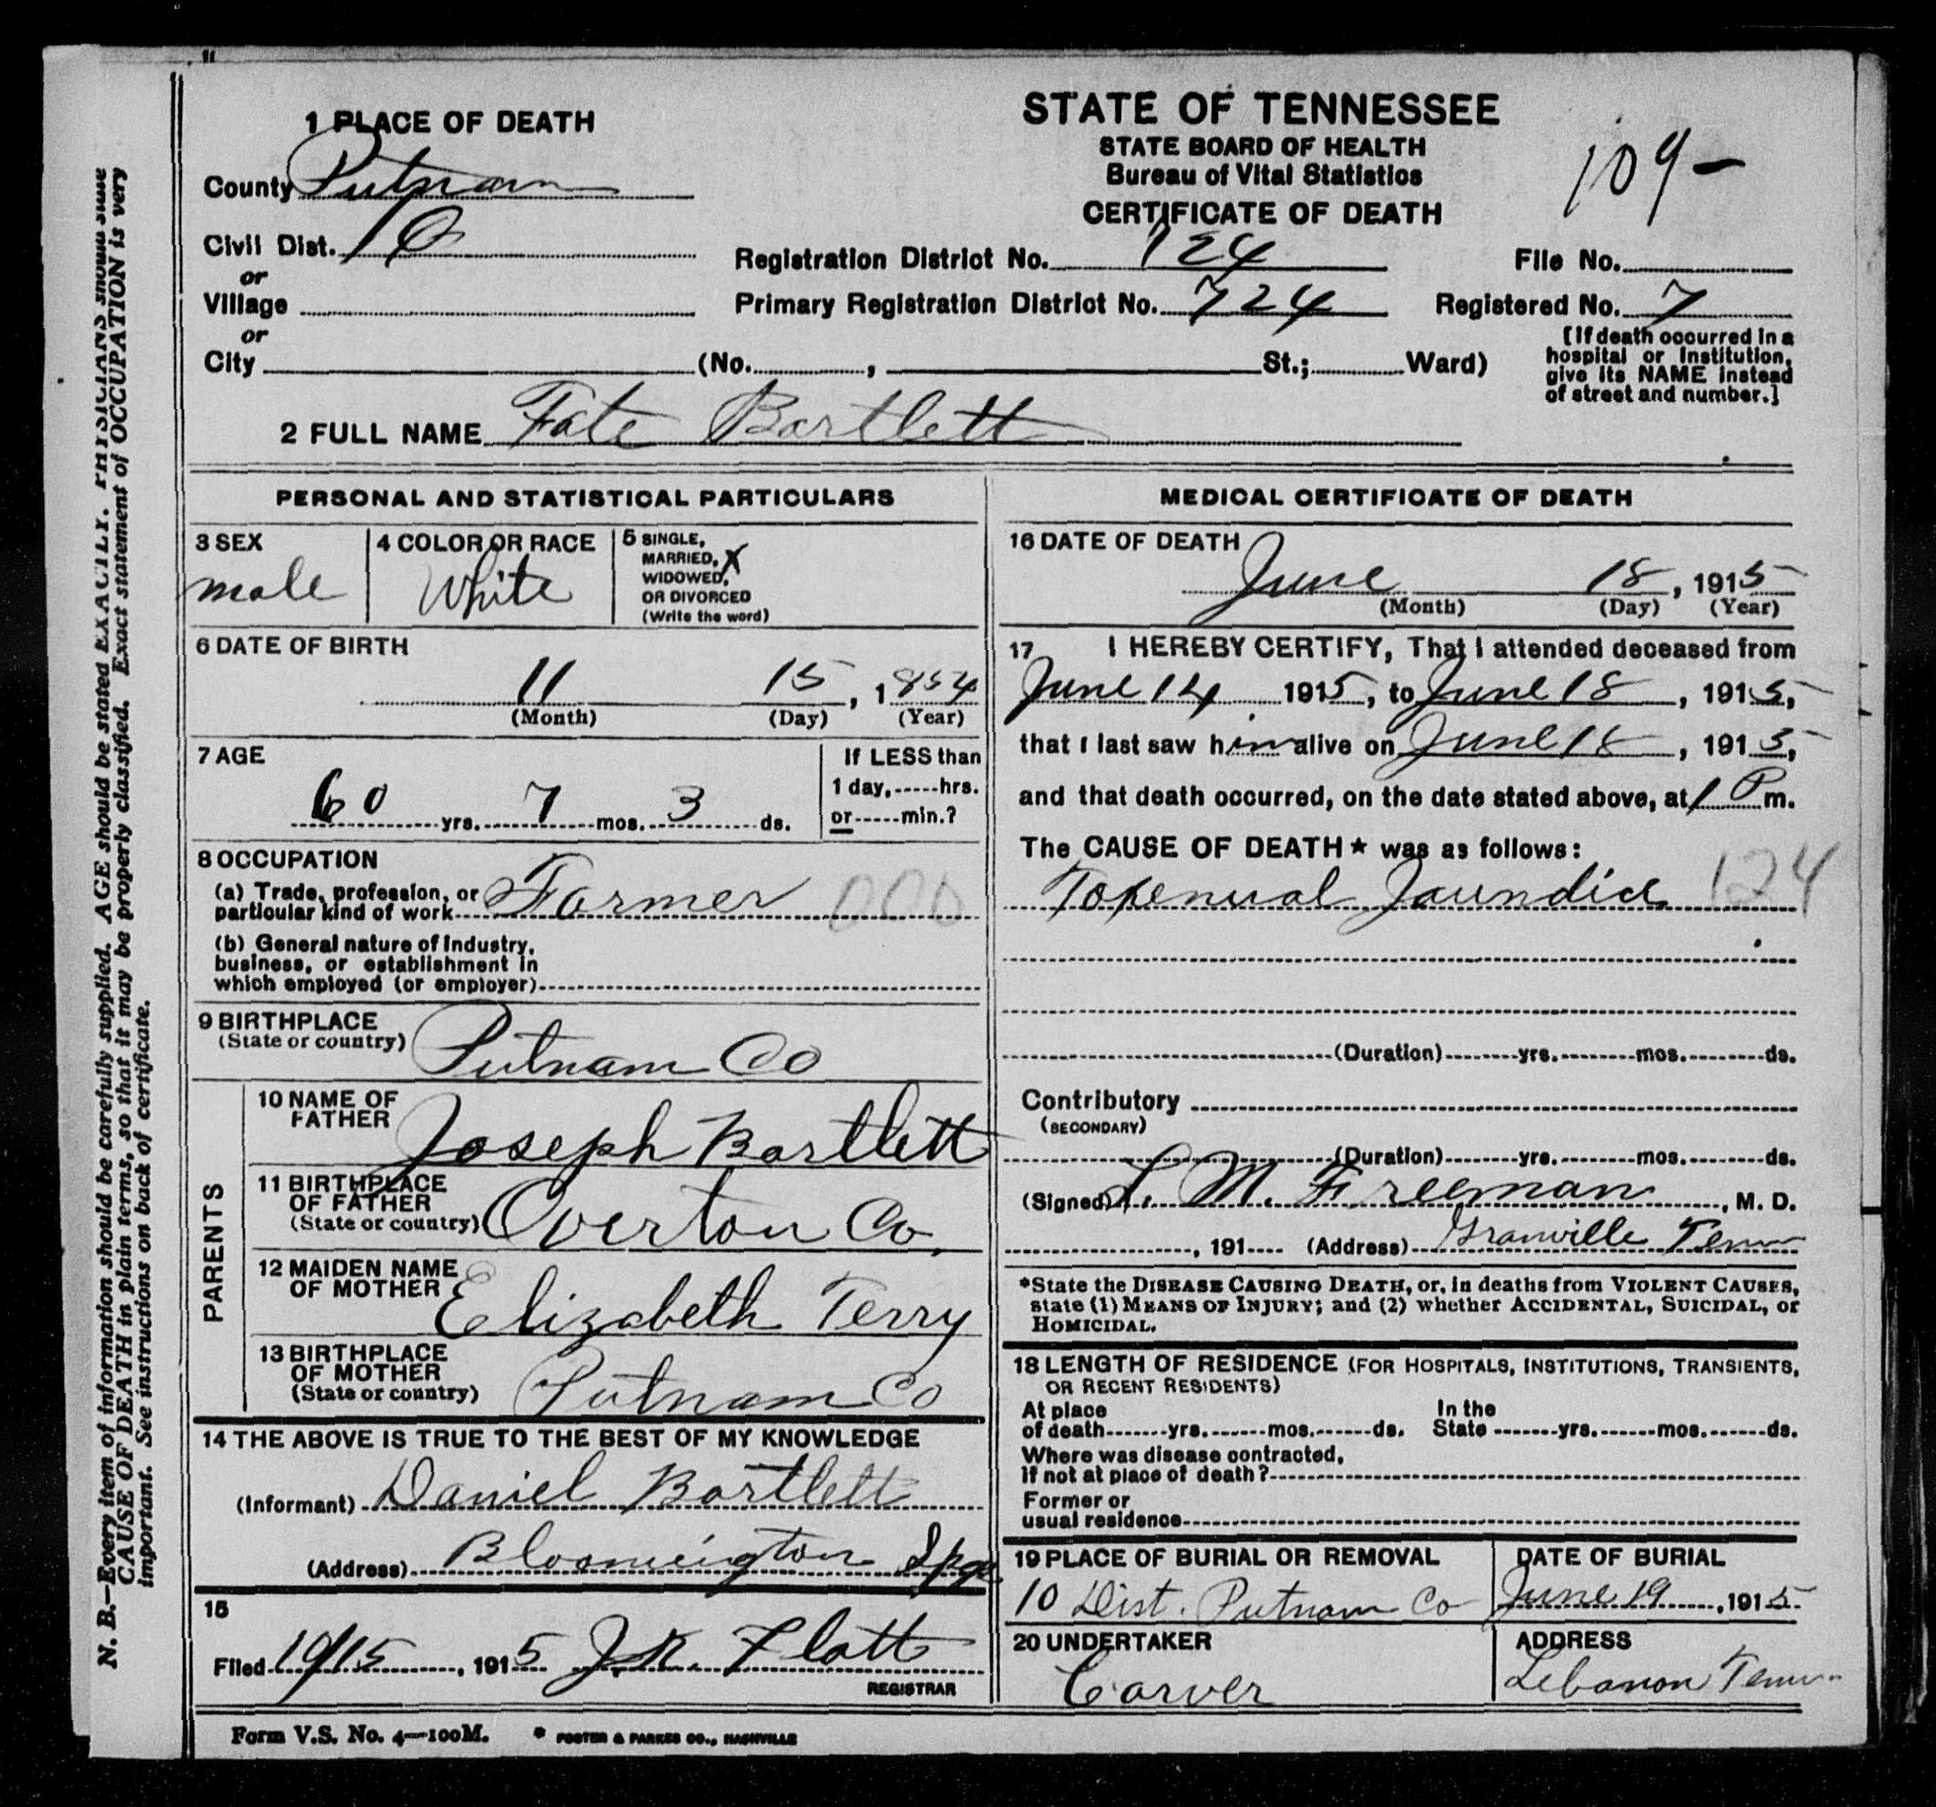 1 PLACE OF DEATH
County Putnam
Civil Dist. 10
or
Village
or
City (No. , St.; Ward)
STATE OF TENNESSEE
STATE BOARD OF HEALTH
Bureau of Vital Statistics
CERTIFICATE OF DEATH
109-
Registration District No. 724
File No.
Primary Registration District No. 724
Registered No. 7
[If death occurred in a
hospital or institution,
give its NAME instead
of street and number.]
2 FULL NAME Fate Bartlett
PERSONAL AND STATISTICAL PARTICULARS
3 SEX
male
4 COLOR OR RACE
White
5 SINGLE,
MARRIED, X
WIDOWED,
OR DIVORCED
(Write the word)
6 DATE OF BIRTH
11 15, 1854
(Month) (Day) (Year)
7 AGE
60 yrs. 7 mos. 3 ds.
If LESS than
1 day,-----hrs.
or-----min.?
8 OCCUPATION
(a) Trade, profession, or
particular kind of work Farmer 000
(b) General nature of industry,
business, or establishment in
which employed (or employer)
9 BIRTHPLACE
(State or country) Putnam Co
PARENTS
10 NAME OF
FATHER Joseph Bartlett
11 BIRTHPLACE
OF FATHER
(State or country) Overton Co.
12 MAIDEN NAME
OF MOTHER Elizabeth Terry
13 BIRTHPLACE
OF MOTHER
(State or country) Putnam Co
14 THE ABOVE IS TRUE TO THE BEST OF MY KNOWLEDGE
(Informant) Daniel Bartlett
(Address) Bloomington Spgs
15
Filed 19/15, 1915 J. R. Flatt
REGISTRAR
MEDICAL CERTIFICATE OF DEATH
16 DATE OF DEATH
June 18, 1915
(Month) (Day) (Year)
17 I HEREBY CERTIFY, That I attended deceased from
June 14 1915, to June 18, 1915,
that I last saw him alive on June 18, 1915,
and that death occurred, on the date stated above, at 1 P m.
The CAUSE OF DEATH* was as follows:
Jaundice 124
(Duration) yrs. mos. ds.
Contributory
(SECONDARY)
(Duration) yrs. mos. ds.
(Signed) L. M. Freeman, M. D.
, 191 (Address) Granville Tenn
*State the DISEASE CAUSING DEATH, or, in deaths from VIOLENT CAUSES,
state (1) MEANS OF INJURY; and (2) whether ACCIDENTAL, SUICIDAL, or
HOMICIDAL.
18 LENGTH OF RESIDENCE (FOR HOSPITALS, INSTITUTIONS, TRANSIENTS,
OR RECENT RESIDENTS)
At place In the
of death yrs. mos. ds. State yrs. mos. ds.
Where was disease contracted,
if not at place of death?
Former or
usual residence
19 PLACE OF BURIAL OR REMOVAL
10 Dist. Putnam Co
DATE OF BURIAL
June 19, 1915
20 UNDERTAKER
Carver
ADDRESS
Lebanon Tenn
Form V.S. No. 4—100M. * FOSTER & PARKES CO., NASHVILLE
N. B.—Every item of information should be carefully supplied. AGE should be stated EXACTLY. PHYSICIANS should state
CAUSE OF DEATH in plain terms, so that it may be properly classified. Exact statement of OCCUPATION is very
important. See instructions on back of certificate.